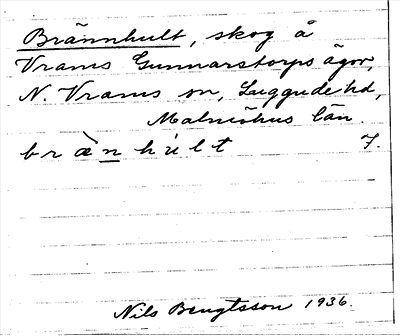 Brännhult, skog å
Vrams Gunnarstorps ägor,
N. Vrams sn, Luggude hd,
Malmöhus län.
brä̀nhúlt 7.
Nils Bengtsson 1936.